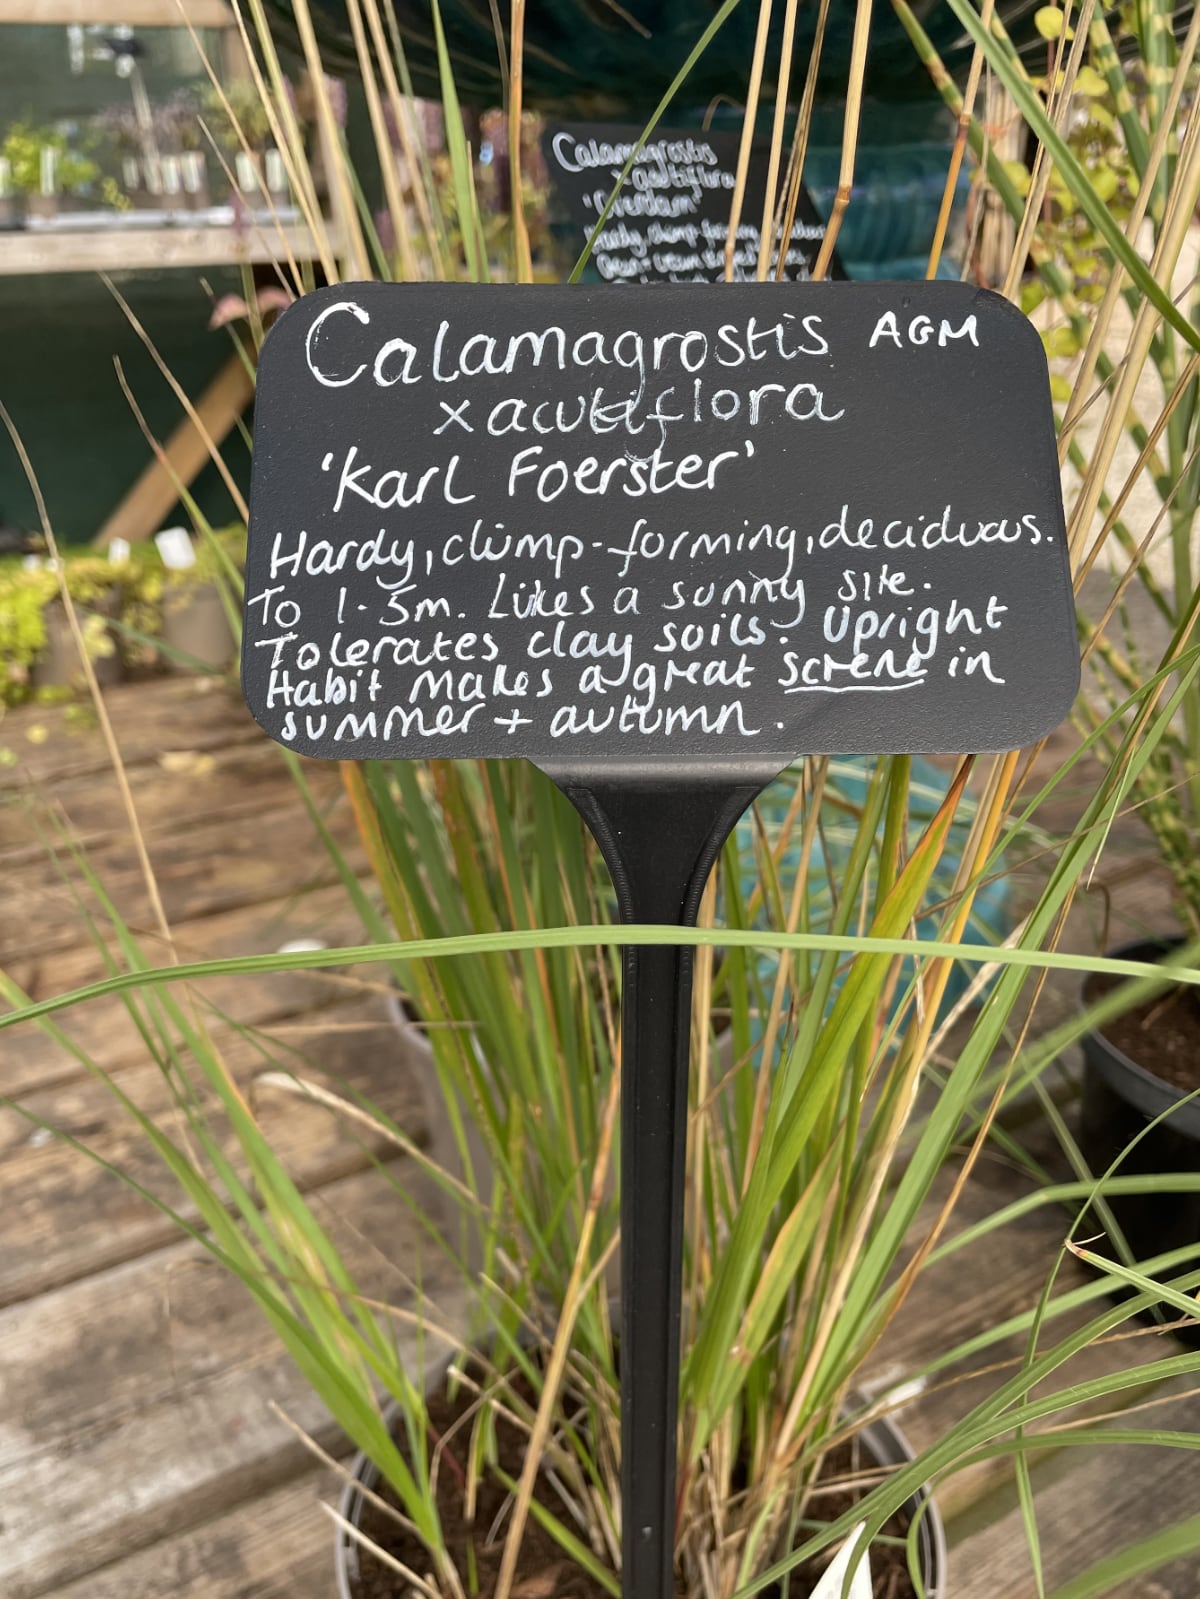 Calamagrostis
x acutiflora
'Overdam'
Hardy, clump-forming
Calamagrostis AGM
x acutiflora
'Karl Foerster'
Hardy, clump-forming, deciduous.
To 1.5m. Likes a sunny site.
Tolerates clay soils. Upright
Habit makes a great screne in
summer + autumn.